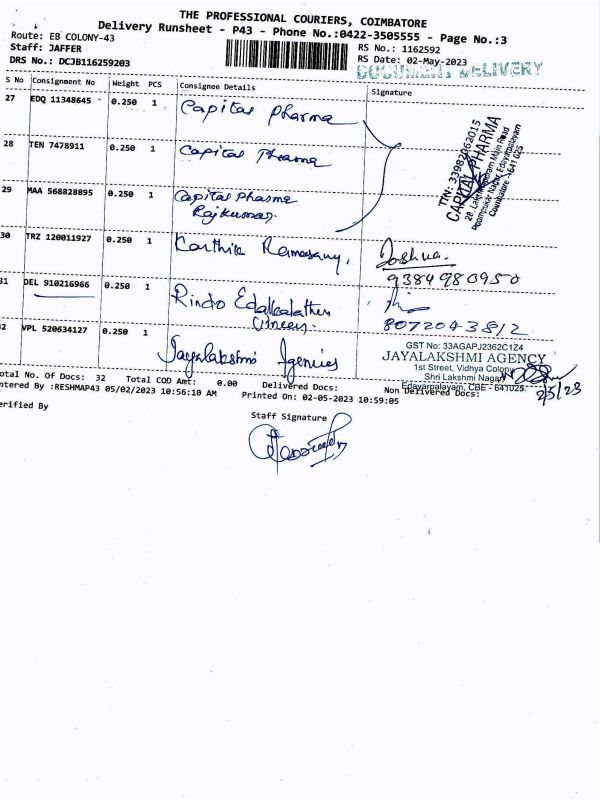 THE PROFESSIONAL COURIERS, COIMBATORE
Delivery Runsheet - P43 - Phone No.:0422-3505555 - Page No.:3
Route: EB COLONY-43
Staff: JAFFER
DRS No.: DCJB116259203
RS No.: 1162592
RS Date: 02-May-2023
DOCUMENT DELIVERY
S No Consignment No Weight PCS Consignee Details Signature
27 EDQ 11348645 0.250 1 Capital pharma
28 TEN 7478911 0.250 1 Capital Pharma
29 MAA 568828895 0.250 1 Capital Pharma
Rajkumar.
TIN: 33982062015
CAPITAL PHARMA
Coimbatore - 641 025
30 TRZ 120011927 0.250 1 Karthik Ramasamy, Joshua.
9384980950
31 DEL 910216966 0.250 1 Rindo Edalkalathur
8072043812
32 VPL 520634127 0.250 1 Jayalakshmi Agencies
GST No: 33AGAPJ2362C1Z4
JAYALAKSHMI AGENCY
1st Street, Vidhya Colony
Shri Lakshmi Nagar
Edayarpalayam, CBE - 641025.
2/5/23
otal No. Of Docs: 32 Total COD Amt: 0.00 Delivered Docs: Non Delivered Docs:
ntered By :RESHMAP43 05/02/2023 10:56:10 AM Printed On: 02-05-2023 10:59:05
erified By
Staff Signature